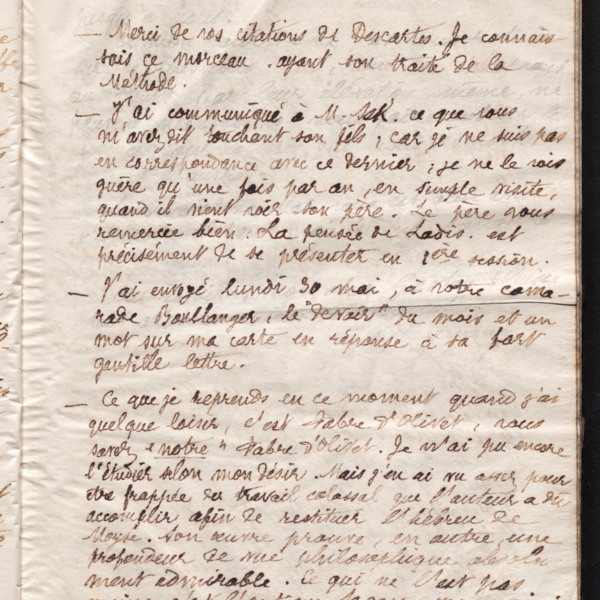 — Merci de vos citations de Descartes. Je connais-
sais ce morceau. ayant son traité de la
Méthode.
— J'ai communiqué à M. Sck. ce que vous
m'avez dit touchant son fils; car je ne suis pas
en correspondance avec ce dernier; je ne le vois
guère qu'une fois par an, en simple visite,
quand il vient voir son père. Le père vous
remercie bien. La pensée de Ladis. est
précisément de se présenter en 1ère session.
— J'ai envoyé lundi 30 mai, à votre cama-
rade Boullanger, le "devoir" du mois et un
mot sur ma carte en réponse à sa fort
gentille lettre.
— Ce que je reprends en ce moment quand j'ai
quelque loisir, c'est Fabre d'Olivet, vous
savez "notre" Fabre d'Olivet. Je n'ai pu encore
l'étudier selon mon désir. Mais j'en ai vu assez pour
être frappée du travail colossal que l'auteur a dû
accomplir afin de restituer l'hébreu de
Moyse. Son œuvre prouve, en outre, une
profondeur de vue philosophique absolu-
ment admirable. Ce qui ne l'est pas